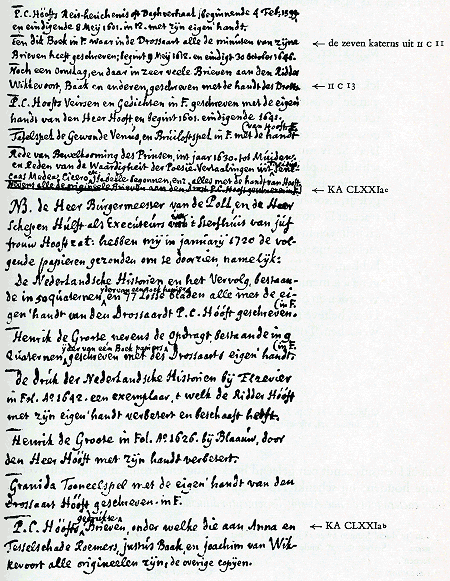 P.C. Hoofts Reis-heuchenis oft Daghverhaal, beginnende 4 Feb. 1599
en eindigende 8 Meij 1601. in 12. met zijn eigen handt.
Een dik Boek in F. waar in de Drossaart alle de minuten van zijne
Brieven heeft geschreven; begint 9 Meij 1618. en eindigt 30 October 1646.
← de zeven katerns uit II C 11
Noch een omslag, en daar in zeer veele Brieven aan den Ridder
Wikkevoort, Baak en anderen, geschreven met de handt des Drosts
← II C 13
P.C. Hoofts Veirsen en Gedichten in F. geschreven met de eigen
handt van den Heer Hooft en begint 1601. eindigende 1621.
Tafelspel de Gewonde Venus, en Bruiloftspel in F. met de handt
van Hooft
Rede van Bewelkooming des Prinsen, int jaar 1630. tot Muiden.
en Reden van de Waardigheit der Poesie. Vertaalingen uit Sene-
caas Medea, Cicero,
Nevens alle de origineele Brieven aan den drost P.C. Hooft geschreven
← KA CLXXIac
NB. de Heer Burgermeester van de Poll, en de Heer
Schepen Hulft als Executeurs van 't Sterfhuis van juf
frouw Hooft zat: hebben mij in januarij 1720 de vol-
gende papieren gezonden om te doorzien, namelijk:
de Nederlandsche Historien en het Vervolg, bestaan-
yder van een boek papiers
de in 50 quaternen, en 77 losse bladen alle met de ei-
(in F.
gen handt van den Drossaardt P.C. Hóóft geschreven.
Henrik de Groote nevens de Opdragt bestaande in 9
yder van een Boek papiers (in F.
Quaternen, geschreven met des Drossaarts eigen handt.
de druk der Nederlandsche Historien bij Elzevier
in Fol. Aº. 1642. een exemplaar, 't welk de Ridder Hóóft
met zijn eigen handt verbetert en beschaaft heeft.
Henrik de Groote in Fol. Aº. 1626. bij Blaauw, door
den Heer Hóóft met zijn handt verbetert.
Granida Tooneelspel met de eigen handt van den
Drossaart Hooft geschreven. in F.
gedrukte
P.C. Hóófts Brieven, onder welke die aan Anna en
← KA CLXXIab
Tesselschade Roemers, justus Baak, en joachim van Wik-
kevoort alle origineelen zijn, de overige copijen.